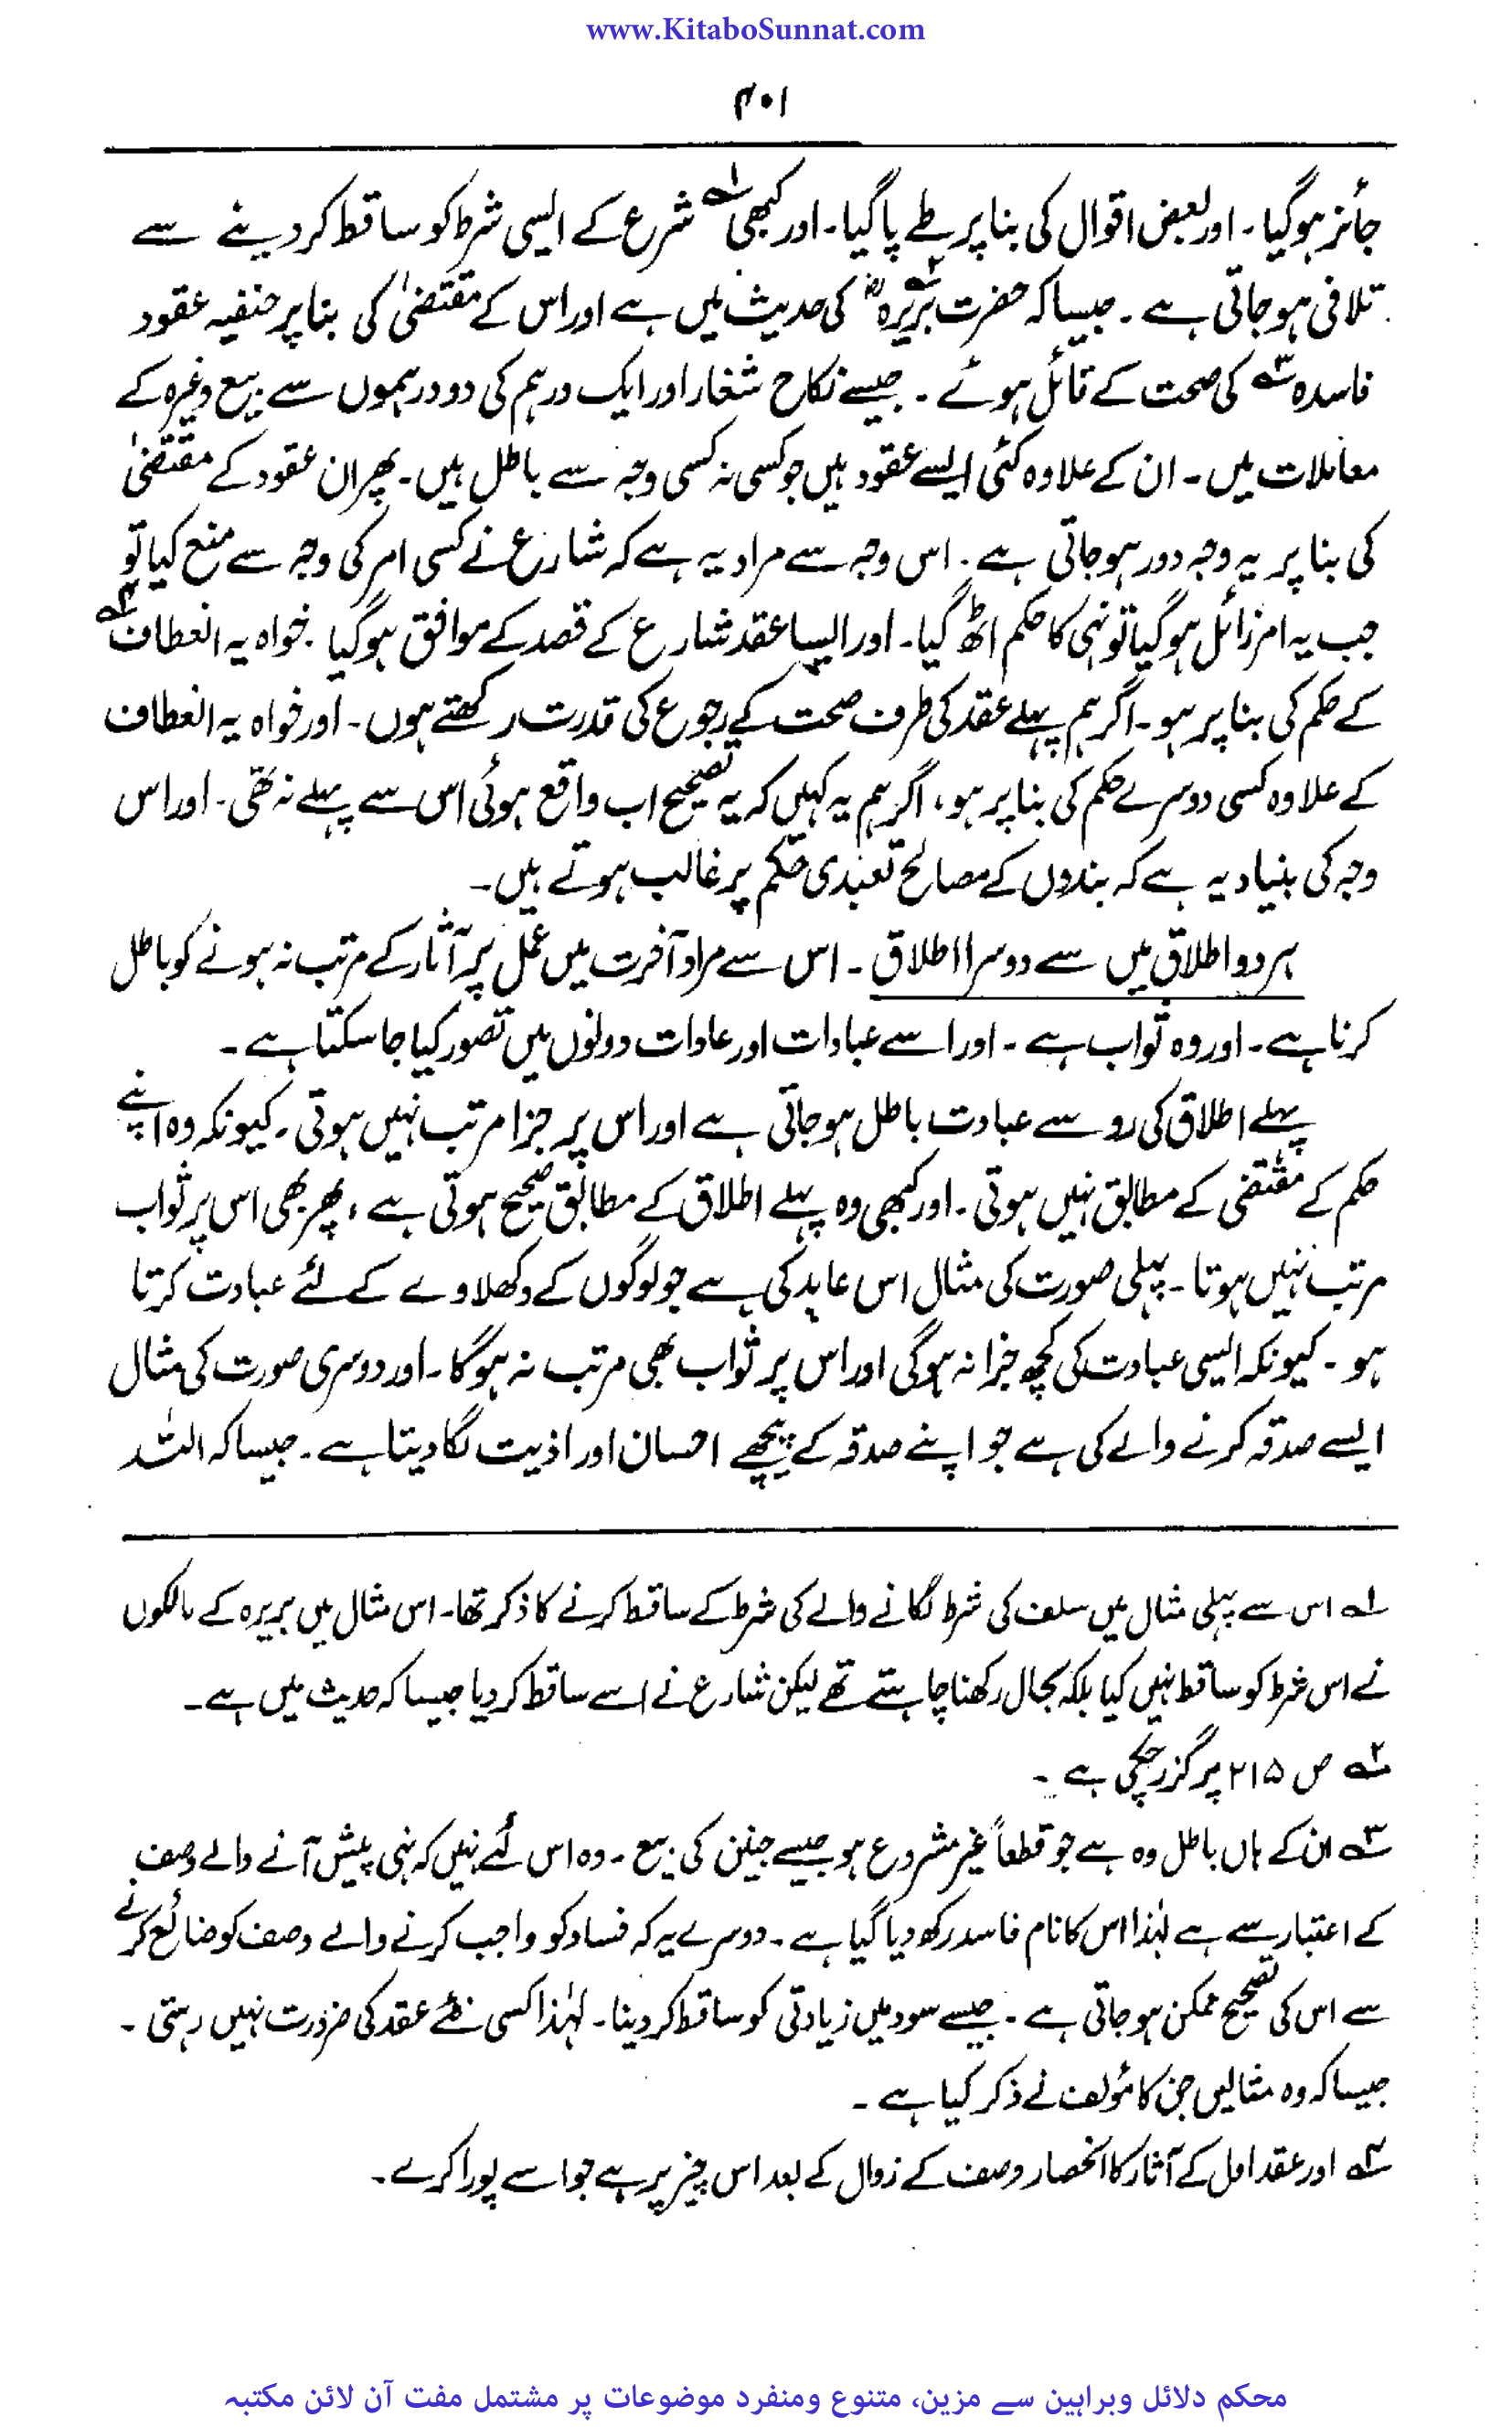 www.KitaboSunnat.com
۴۰۱
جائز ہوگیا۔ اور بعض اقوال کی بنا پر طے پاگیا۔ اور کبھی۱؎ شرع کے ایسی شرط کو ساقط کر دینے سے
تلافی ہو جاتی ہے۔ جیسا کہ حضرت بریرہ۲؎ؓ کی حدیث میں ہے اور اس کے مقتضیٰ کی بنا پر حنفیہ عقود
فاسدہ۳؎ کی صحت کے قائل ہوئے۔ جیسے نکاح شغار اور ایک درہم کی دو درہموں سے بیع وغیرہ کے
معاملات میں۔ ان کے علاوہ کئی ایسے عقود ہیں جو کسی نہ کسی وجہ سے باطل ہیں۔ پھر ان عقود کے مقتضیٰ
کی بنا پر یہ وجہ دور ہو جاتی ہے۔ اس وجہ سے مراد یہ ہے کہ شارع نے کسی امر کی وجہ سے منع کیا تو
جب یہ امر زائل ہوگیا تو نہی کا حکم اٹھ گیا۔ اور ایسا عقد شارع کے قصد کے موافق ہوگیا۔ خواہ یہ انعطاف۴؎
کے حکم کی بنا پر ہو۔ اگر ہم پہلے عقد کی طرف صحت کے رجوع کی قدرت رکھتے ہوں۔ اور خواہ یہ انعطاف
کے علاوہ کسی دوسرے حکم کی بنا پر ہو، اگر ہم یہ کہیں کہ یہ تصحیح اب واقع ہوئی اس سے پہلے نہ تھی۔ اور اس
وجہ کی بنیاد یہ ہے کہ بندوں کے مصالح تعبدی حکم پر غالب ہوتے ہیں۔
ہر دو اطلاق میں سے دوسرا اطلاق۔ اس سے مراد آخرت میں عمل پر آثار کے مرتب نہ ہونے کو باطل
کرنا ہے۔ اور وہ ثواب ہے۔ اور اسے عبادات اور عادات دونوں میں تصور کیا جا سکتا ہے۔
پہلے اطلاق کی رو سے عبادت باطل ہو جاتی ہے اور اس پر جزا مرتب نہیں ہوتی۔ کیونکہ وہ اپنے
حکم کے مقتضی کے مطابق نہیں ہوتی۔ اور کبھی وہ پہلے اطلاق کے مطابق صحیح ہوتی ہے، پھر بھی اس پر ثواب
مرتب نہیں ہوتا۔ پہلی صورت کی مثال اس عابد کی ہے جو لوگوں کے دکھلاوے کے لئے عبادت کرتا
ہو۔ کیونکہ ایسی عبادت کی کچھ جزا نہ ہوگی اور اس پر ثواب بھی مرتب نہ ہوگا۔ اور دوسری صورت کی مثال
ایسے صدقہ کرنے والے کی ہے جو اپنے صدقہ کے پیچھے احسان اور اذیت لگا دیتا ہے۔ جیسا کہ اللہ
۱؎ اس سے پہلی مثال میں سلف کی شرط لگانے والے کی شرط کے ساقط کرنے کا ذکر تھا۔ اس مثال میں بریرہ کے مالکوں
نے اس شرط کو ساقط نہیں کیا بلکہ بحال رکھنا چاہتے تھے لیکن شارع نے اسے ساقط کر دیا جیسا کہ حدیث میں ہے۔
۲؎ ص ۲۱۵ پر گزر چکی ہے۔
۳؎ ان کے ہاں باطل وہ ہے جو قطعاً غیر مشروع ہو جیسے جنین کی بیع۔ وہ اس لئے نہیں کہ نہی پیش آنے والے وصف
کے اعتبار سے ہے لہٰذا اس کا نام فاسد رکھ دیا گیا ہے۔ دوسرے یہ کہ فساد کو واجب کرنے والے وصف کو ضائع کرنے
سے اس کی تصحیح ممکن ہو جاتی ہے۔ جیسے سود میں زیادتی کو ساقط کر دینا۔ لہٰذا کسی نئے عقد کی ضرورت نہیں رہتی۔
جیسا کہ وہ مثالیں جن کا مؤلف نے ذکر کیا ہے۔
۴؎ اور عقد اول کے آثار کا انحصار وصف کے زوال کے بعد اس چیز پر ہے جو اسے پورا کرے۔
محکم دلائل وبراہین سے مزین، متنوع ومنفرد موضوعات پر مشتمل مفت آن لائن مکتبہ